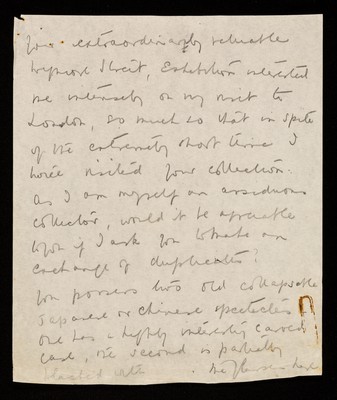 Your extraordinarily valuable
Wigmore Street, Exhibition interested
me intensely on my visit to
London, so much so that in spite
of the extremely short time I
twice visited your collection.
As I am myself an assiduous
collector, would it be agreeable
to you if I ask you to make an
exchange of duplicates?
You possess two old collapsable
Japanese or Chinese spectacles
one has a highly interesting carved
case, the second is partially
with